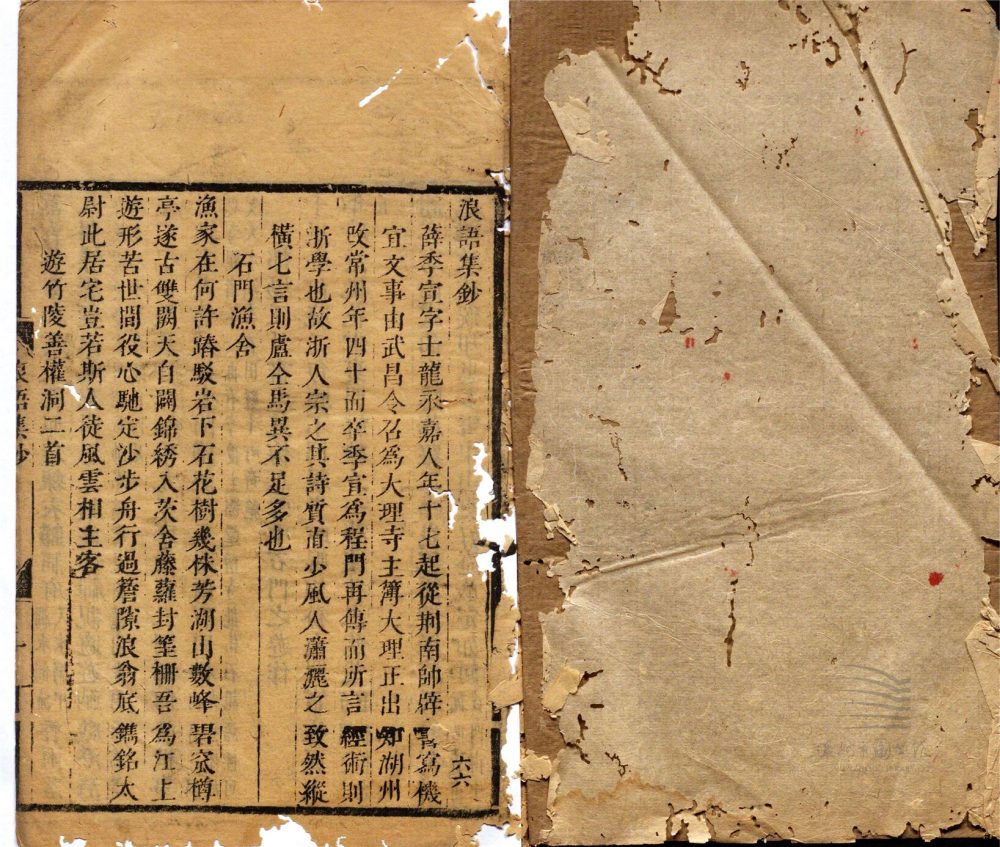 浪語集鈔
六六
薛季宣字士龍永嘉人年十七起從荆南帥辟書寫機
宜文事由武昌令召爲大理寺主簿大理正出知湖州
改常州年四十而卒季宣爲程門再傳而所言經術則
浙學也故浙人宗之其詩質直少風人瀟灑之致然縱
橫七言則盧仝馬異不足多也
石門漁舍
漁家在何許踳駁岩下石花樹幾株芳湖山數峰碧窊樽
亭遂古雙闕天自闢錦綉入茨舍藤蘿封筀柵吾爲江上
遊形苦世間役心馳定沙步舟行過簷隙浪翁底鐫銘太
尉此居宅豈若斯人徒風雲相主客
遊竹陵善權洞二首
浪語集鈔